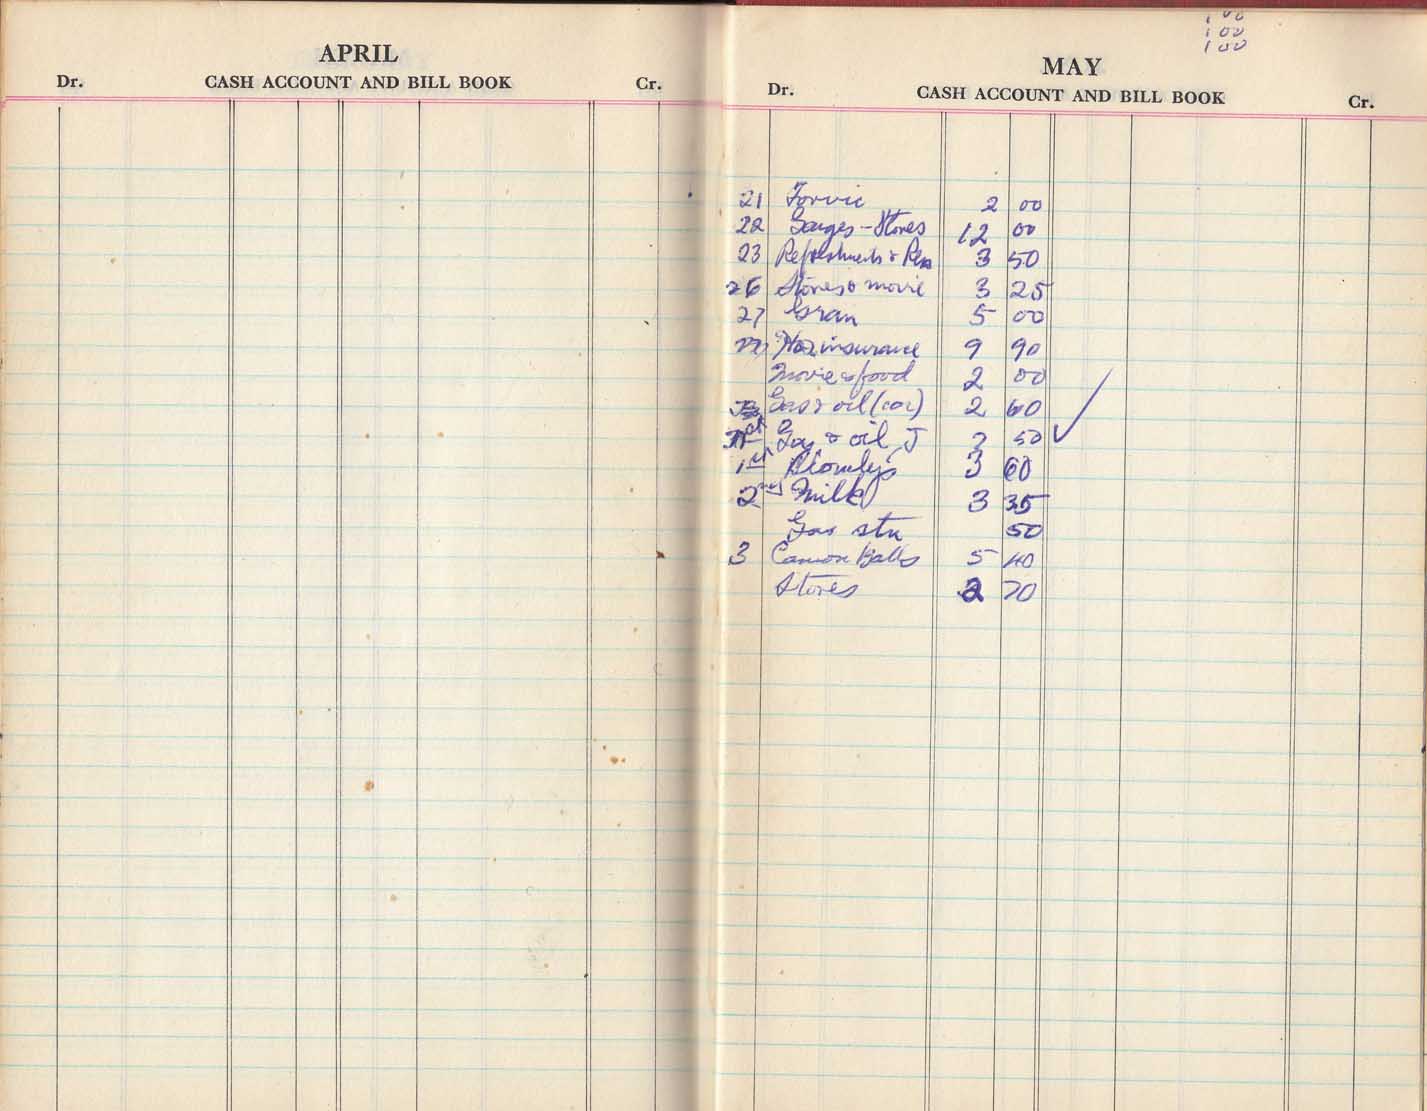 APRIL
Dr. CASH ACCOUNT AND BILL BOOK Cr.
100
100
100
MAY
Dr. CASH ACCOUNT AND BILL BOOK Cr.
21 2 00
22 - Stores 12 00
23 Refreshments & 3 50
26 Stores & movie 3 25
27 Gran 5 00
insurance 9 90
Movie & food 2 00
Gas & oil (car) 2 60
Gas & oil J 2 50
1st 3 60
2nd Milk 3 35
Gas stn 50
3 Canon Balls 5 40
Stores 2 70